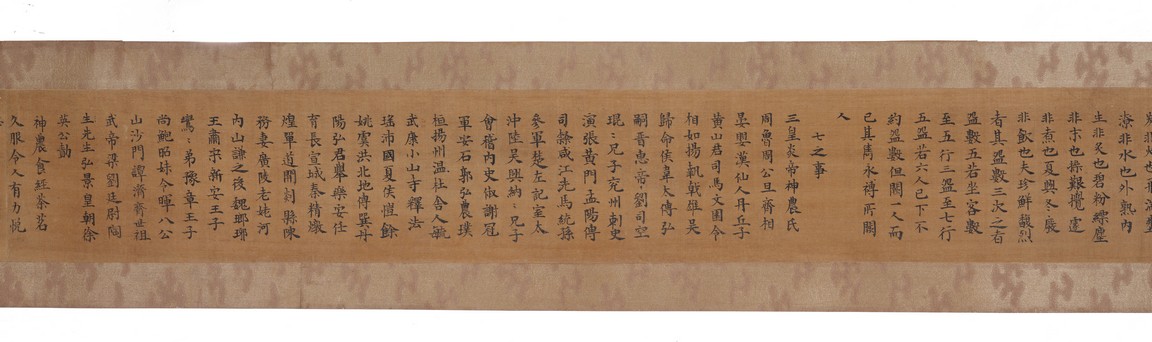 潦非水也外熟內
生非炙也碧粉縹塵
非末也操艱攪遽
非煮也夏興冬廢
非飲也夫珍鮮馥烈
者其盌數三次之者
盌數五若坐客數
至五行三盌至七行
五盌若六人已下不
約盌數但闕一人而
已其雋永補所闕
人
七之事
三皇炎帝神農氏
周魯周公旦齊相
晏嬰漢仙人丹丘子
黃山君司馬文園令
相如揚執戟雄吳
歸命侯韋太傅弘
嗣晉惠帝劉司空
琨〻兄子兗州刺史
演張黃門孟陽傅
司隸咸江先馬統孫
參軍楚左記室太
沖陸吳興納〻兄子
會稽內史俶謝冠
軍安石郭弘農璞
桓揚州溫杜舍人毓
武康小山寺釋法
瑤沛國夏侯愷餘
姚虞洪北地傅巽丹
陽弘君舉樂安任
育長宣城秦精燉
煌單道開剡縣陳
務妻廣陵老姥河
內山謙之後魏瑯琊
王肅宋新安王子
鸞〻弟豫章王子
尚鮑昭妹令暉八公
山沙門譚濟齊世祖
武帝梁劉廷尉陶
生先生弘景皇朝徐
英公勣
神農食經茶茗
久服令人有力悅